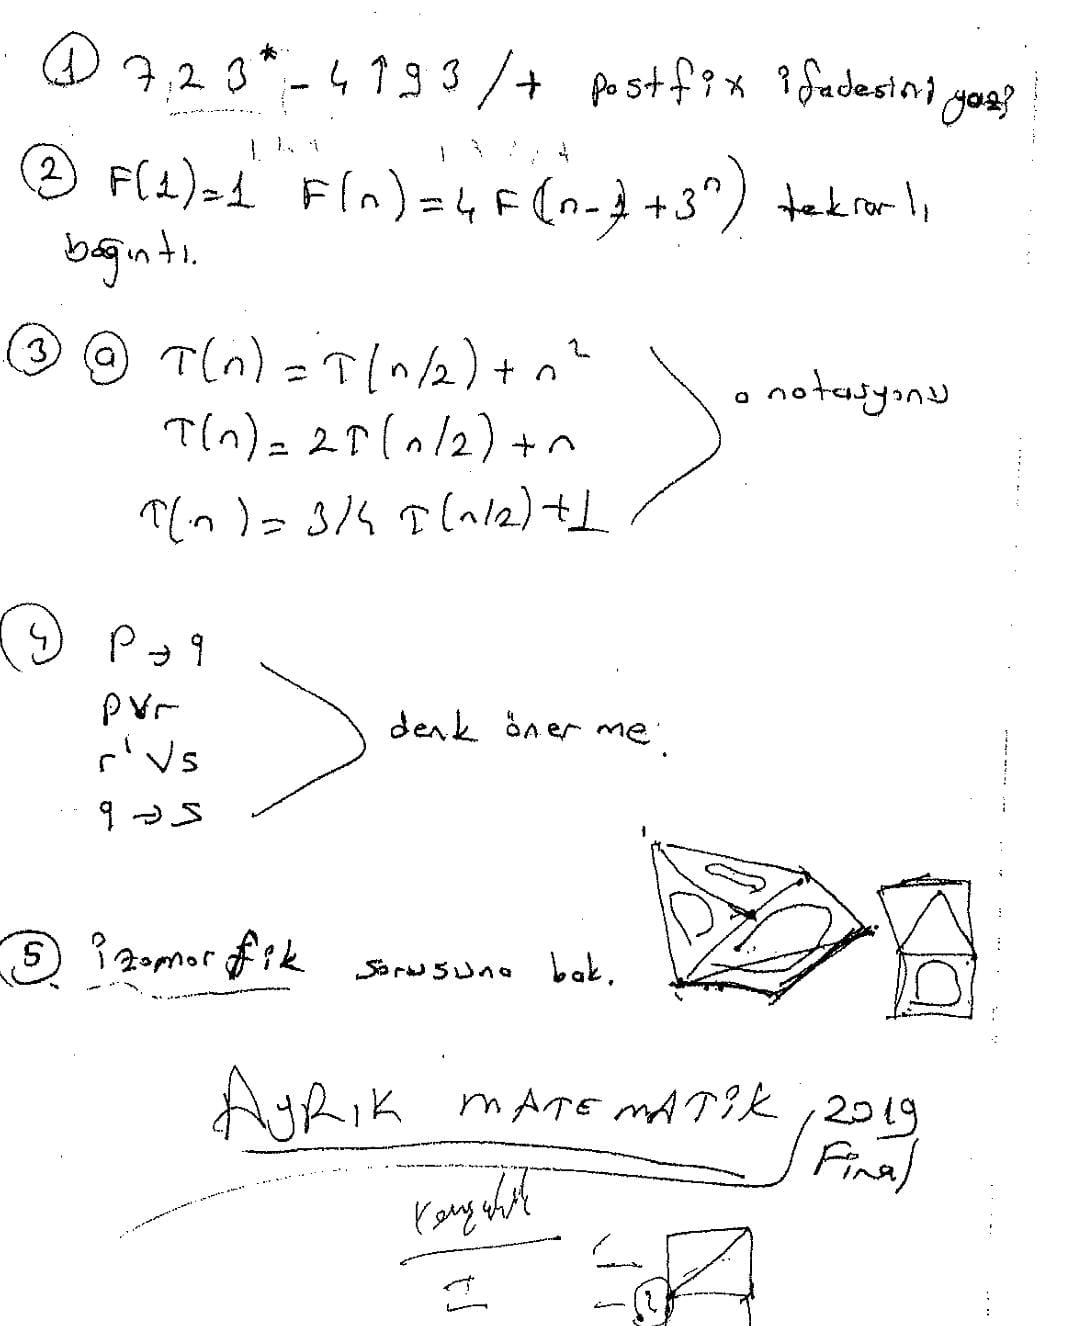 ① 7 2 3 * - 4 ↑ 9 3 / + postfix ifadesini yaz?
② F(1)=1 F(n)=4F(n-1+3ⁿ) tekrarlı
bağıntı.
③ ⓐ T(n) = T(n/2) + n²
o notasyonu
T(n) = 2T(n/2) + n
T(n) = 3/4 T(n/2) + 1
④ P → q
p∨r
denk önerme.
r'∨s
q → s
⑤ izomorfik sorusuna bak.
AYRIK MATEMATİK, 2019
Final